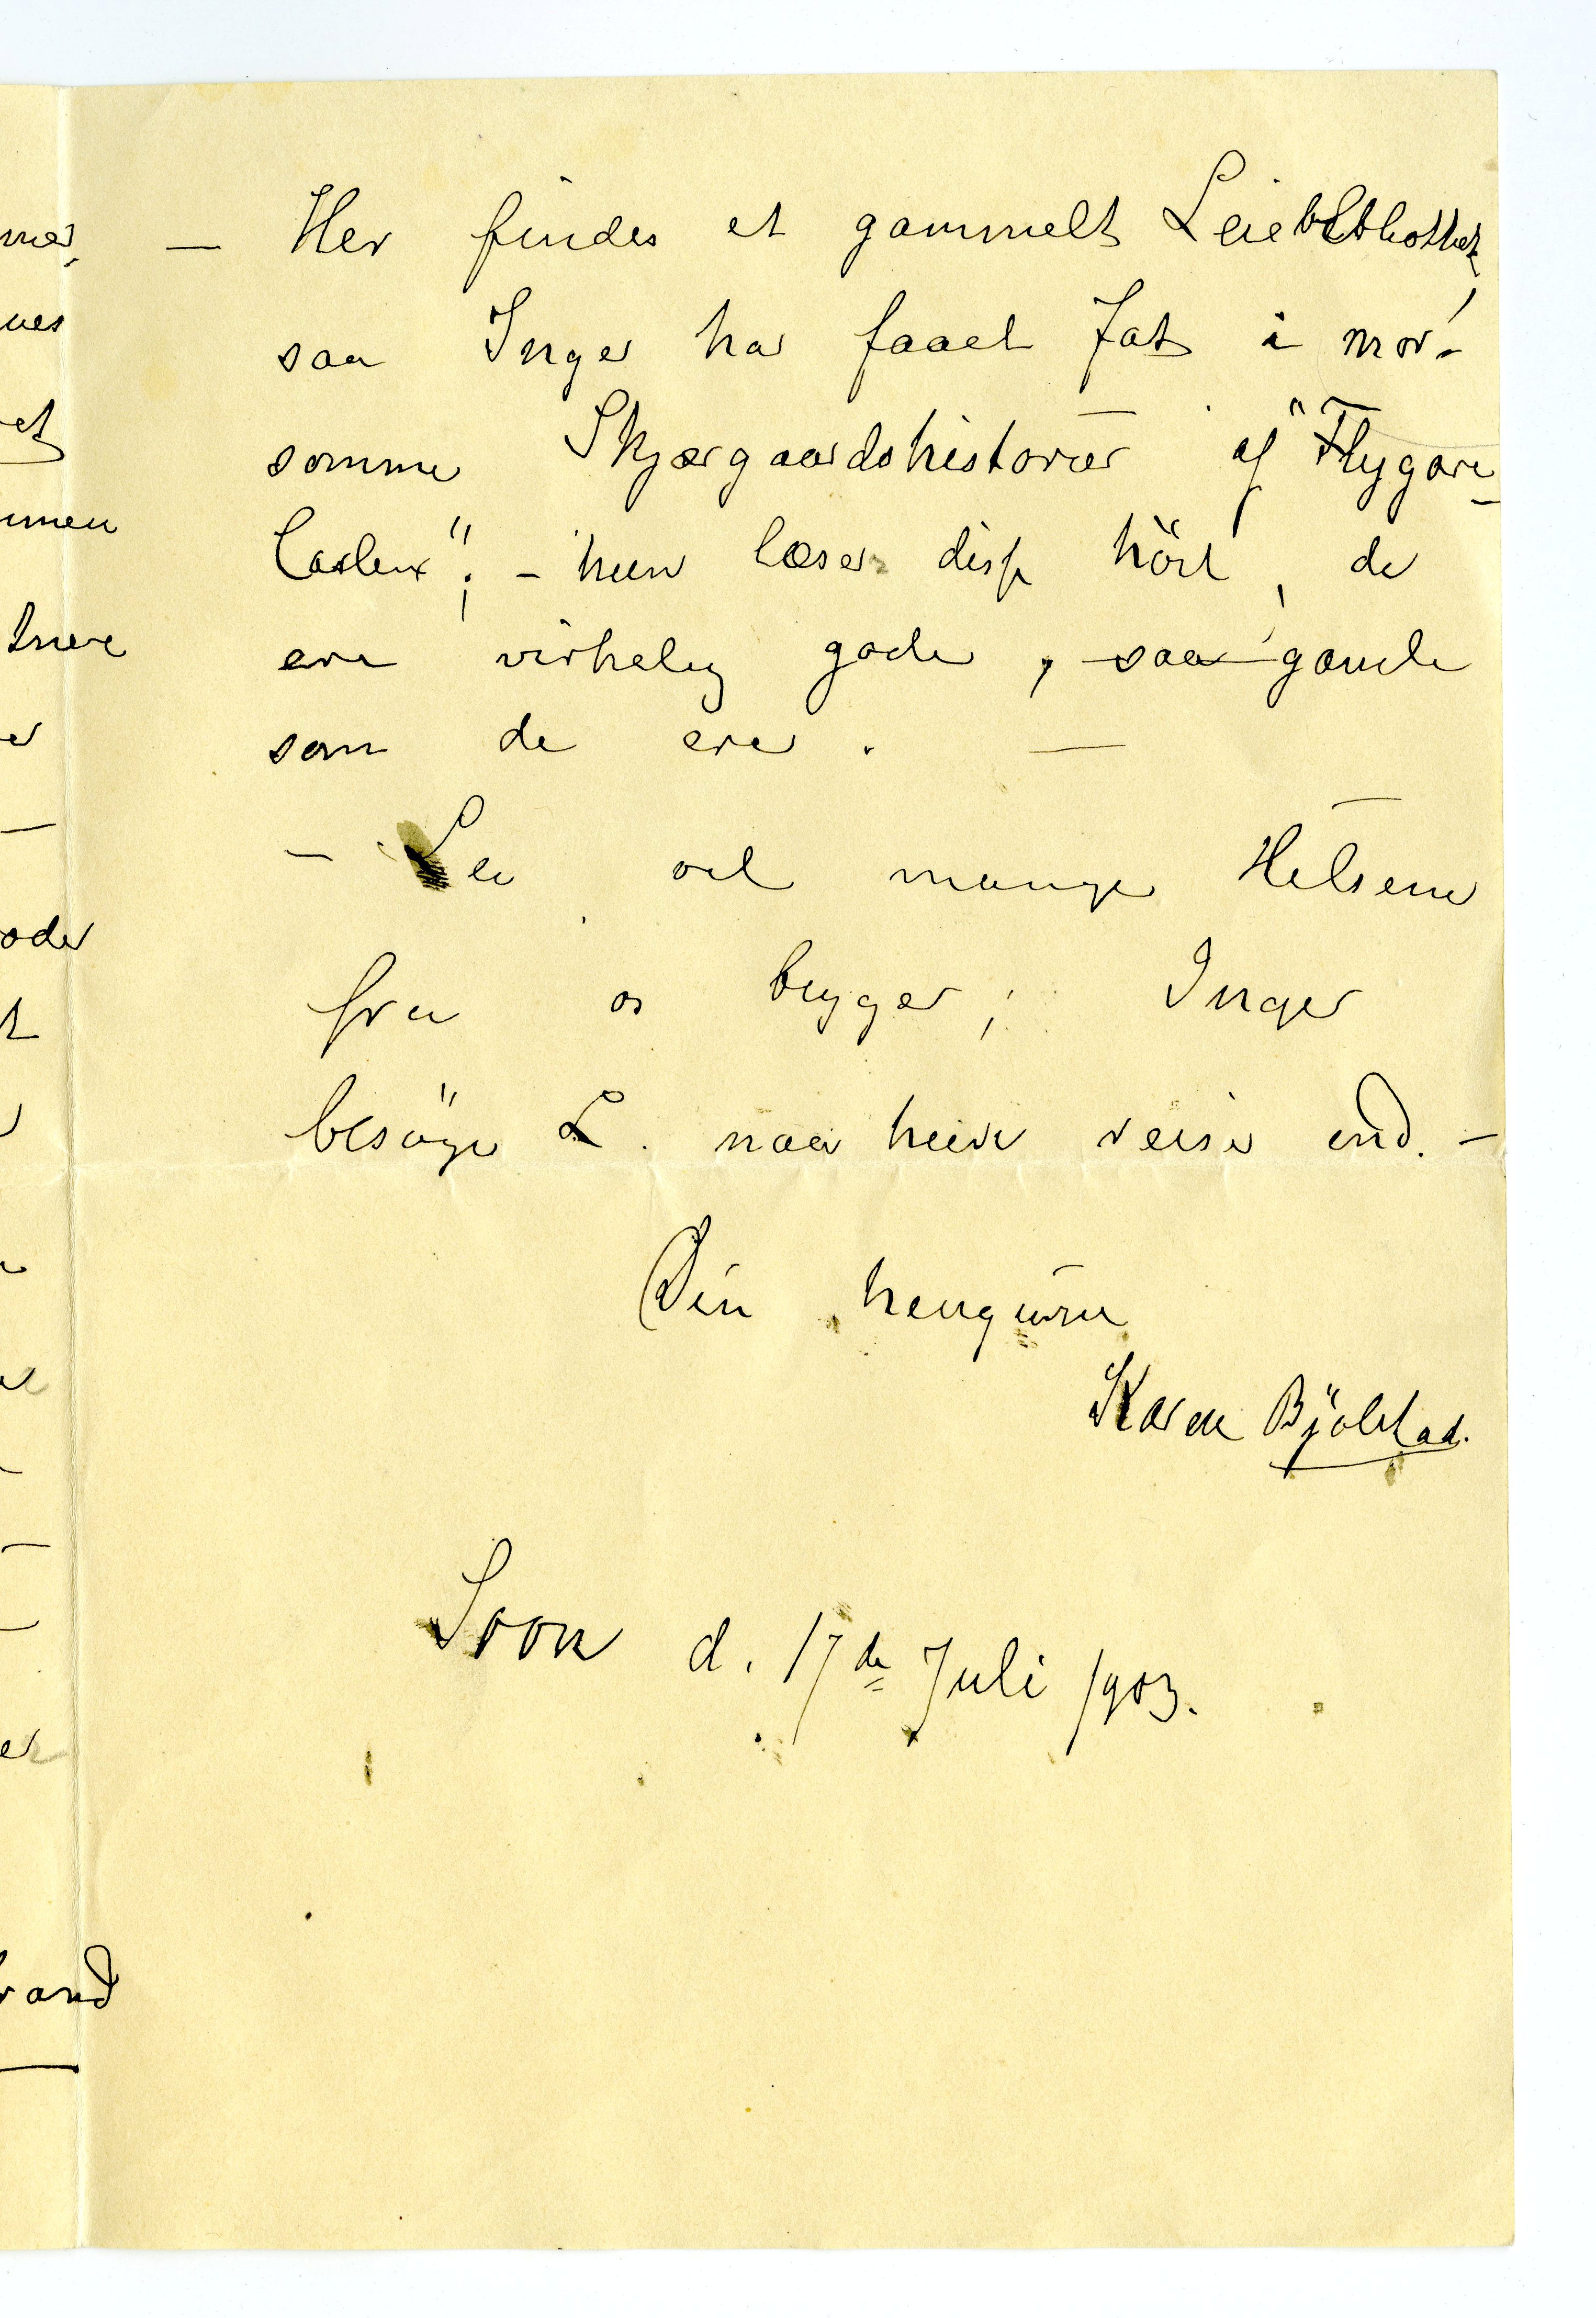 — Her findes et gammelt Leiebibliothek,
saa Inger har faaet Fat i mor-
somme Skjærgaardshistorier af "Flygare
Carlen"; – hun læser disse høit, de
ere virkelig gode, saa gamle
som de ere. —
– Lev vel mange Hilsener
fra os begge; Inger
besøger L. naar hun reiser ind. –
Din hengivne
Karen Bjölstad.
Soon d. 17de Juli 1903.